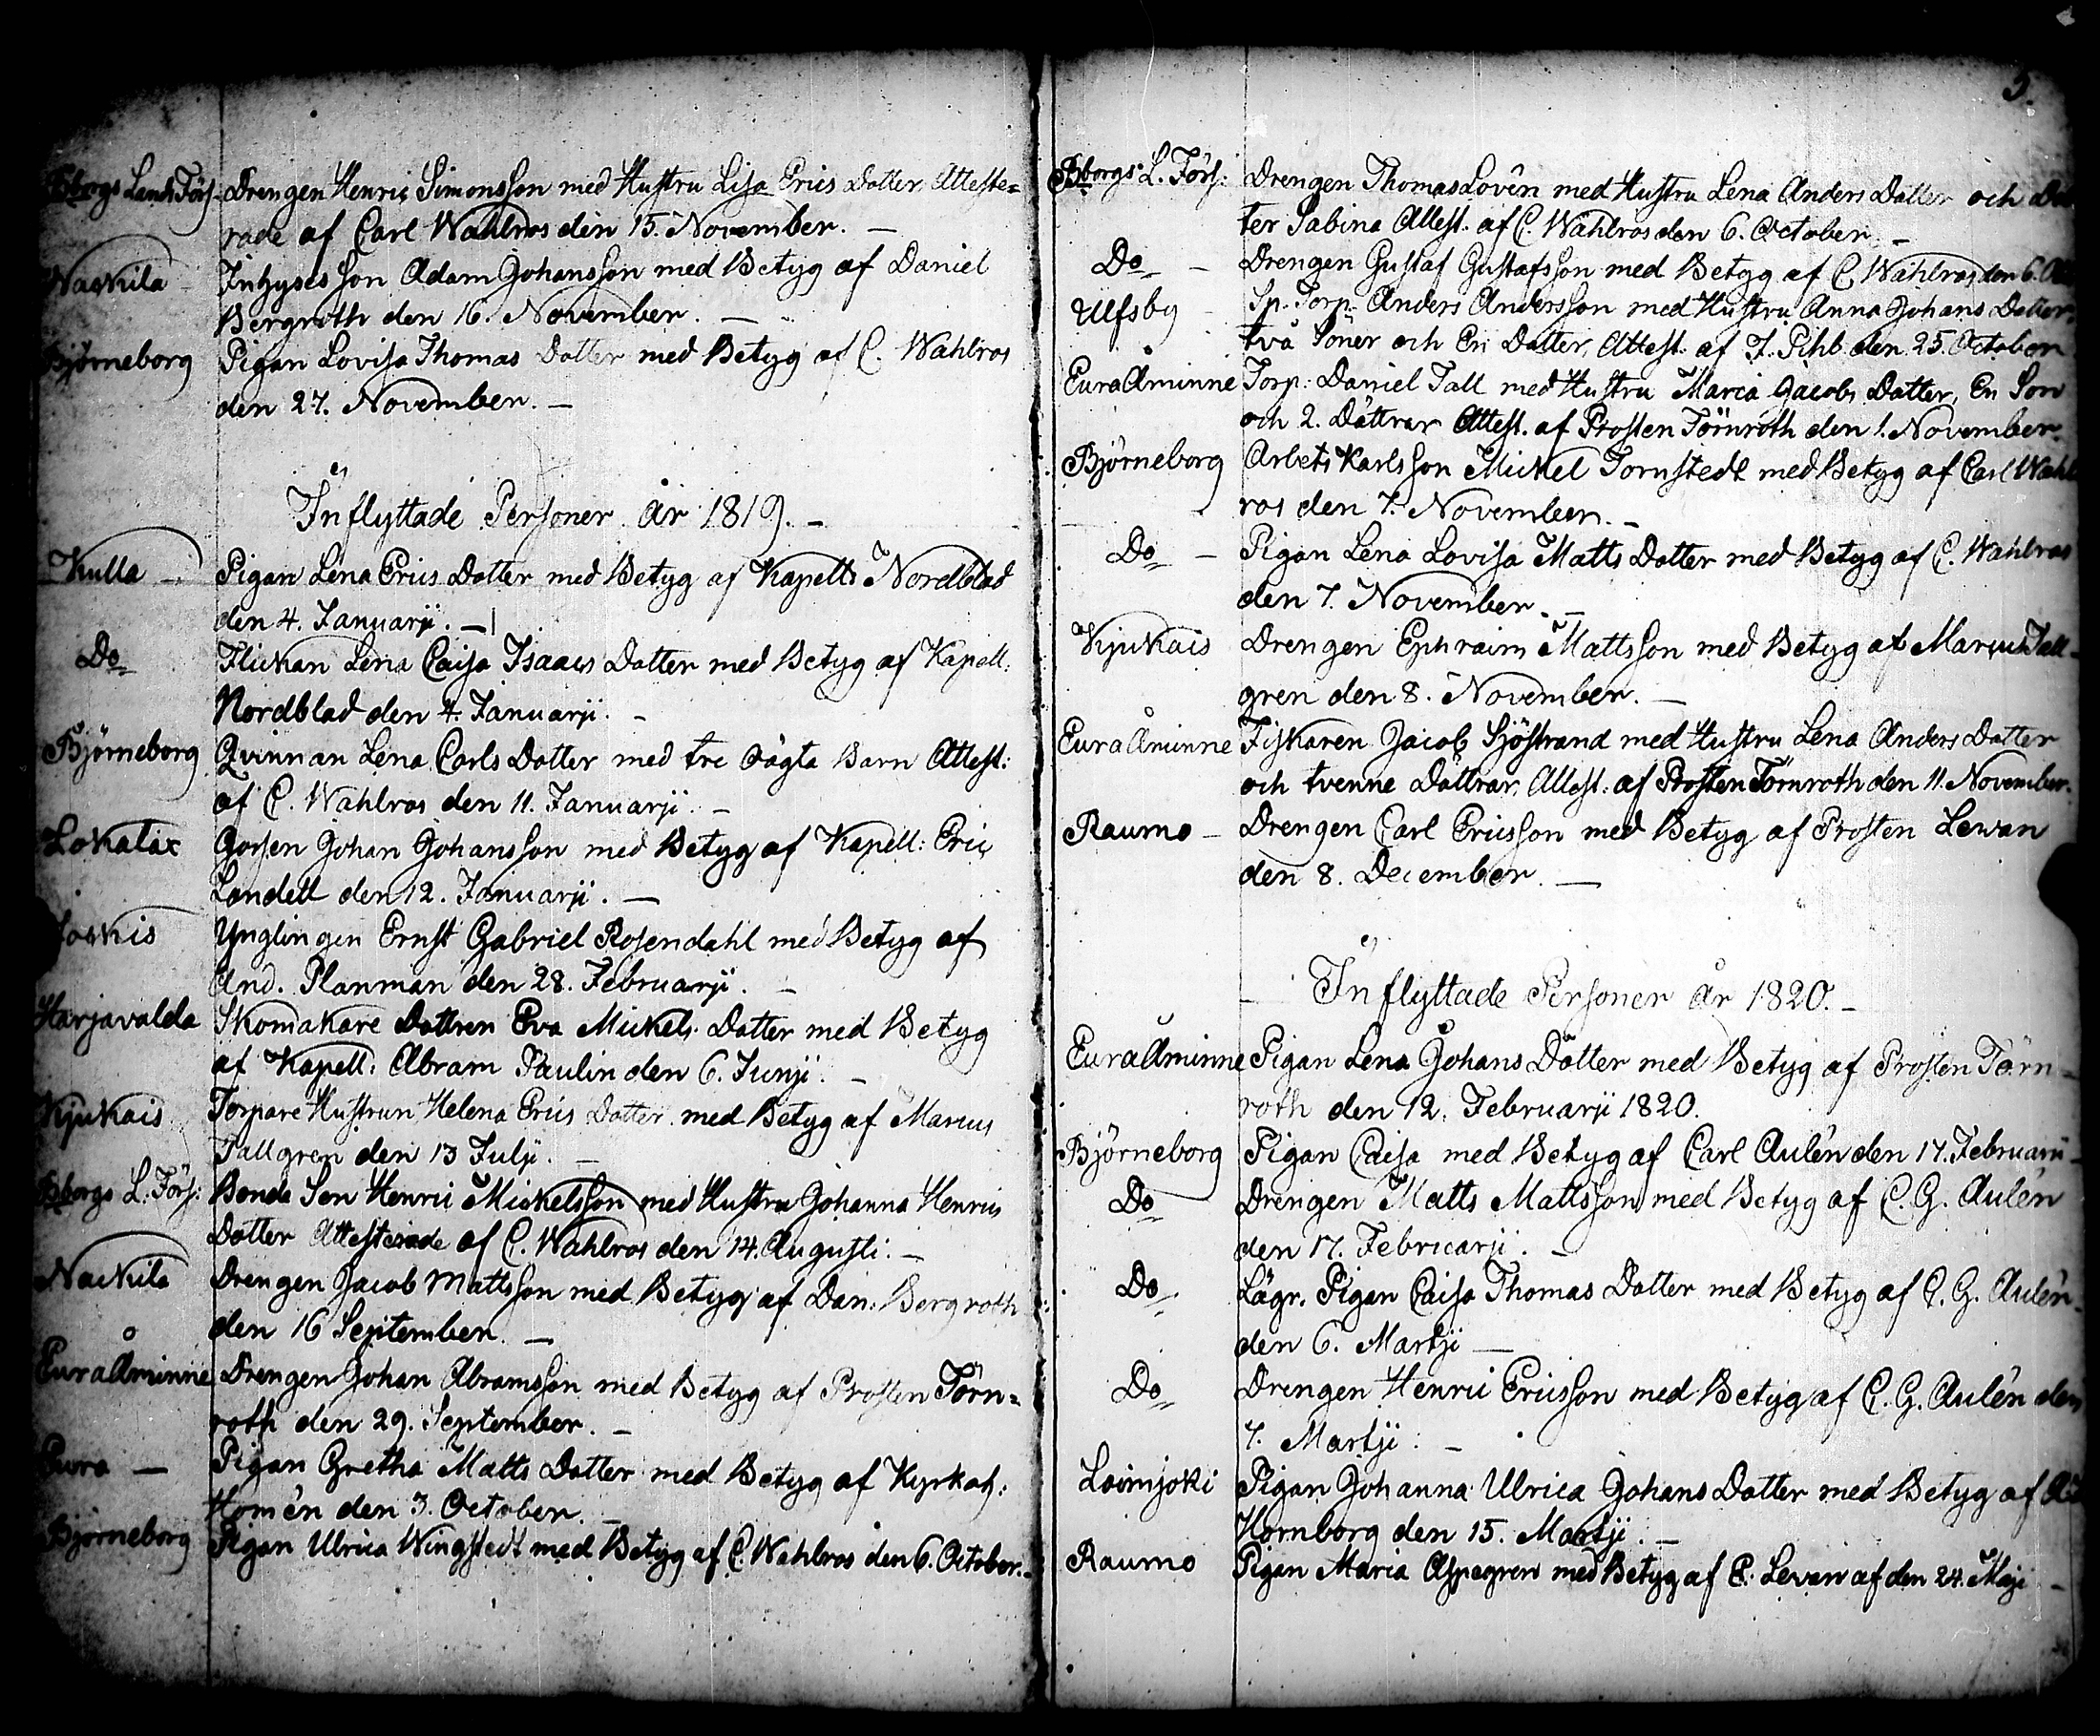 Bborgs Lands Förs. Drengen Henric Simonsson med Hustru Lisa Erics Dotter Atteste=
rade af Carl Wahlros den 15. November. —
Nackila Inhyses Son Adam Johansson med Betyg af Daniel
Bergroth den 16. November. —
Björneborg Pigan Lovisa Thomas Dotter med Betyg af C. Wahlros
den 27. November. —
Inflyttade Personer år 1819. —
Kulla — Pigan Lena Erics Dotter med Betyg af Kapells Nordblad
den 4. Januarji. —
Do Flickan Lena Caisa Isaacs Dotter med Betyg af Kapell:
Nordblad den 4. Januarji. —
Björneborg Qvinnan Lena Carls Dotter med tre oägta Barn Attest:
af C. Wahlros den 11. Januarji. —
Lokalax Gossen Johan Johansson med Betyg af Kapell: Eric
Londell den 12. Januarji. —
Jockis Ynglingen Ernst Gabriel Rosendahl med Betyg af
And. Planman den 28. Februarji. —
Harjavalda Skomakare Dottren Eva Mickels Dotter med Betyg
af Kapell: Abram Paulin den 6. Junji. —
Kjukais Torpare Hustrun Helena Erics Dotter med Betyg af Marcus
Tallgren den 13 Julji. —
Bborgs L. Förs: Bonde Son Henric Mickelsson med Hustru Johanna Henrics
Dotter Attesterade af C. Wahlros den 14. Augusti. —
Nackila Drengen Jacob Mattsson med Betyg af Dan. Bergroth
den 16 September. —
Eura Åminne Drengen Johan Abramsson med Betyg af Prosten Törn=
roth den 29. September. —
Eura — Pigan Gretha Matts Dotter med Betyg af Kyrkoh:
Homén den 3. October. —
Björneborg Pigan Ulrica Wingstedt med Betyg af C. Wahlros den 6. October. —
5.
Bborgs L. Förs: Drengen Thomas Lovén med Hustru Lena Anders Dotter och Dot
ter Sabina Attest. af C. Wahlros den 6. October. —
Do — Drengen Gustaf Gustafsson med Betyg af C. Wahlros den 6. Oct
Ulfsby — Sp. Torp. Anders Andersson med Hustru Anna Johans Dotter,
två Söner och En Dotter, Attest. af J. Pihl den 25. October
Eura Åminne Torp: Daniel Tall med Hustru Maria Jacobs Dotter, En Son
och 2. Döttrar Attest. af Prosten Törnroth den 1. November.
Björneborg Arbets Karls Son Mickel Tornstedt med Betyg af Carl Wahl
ros den 7. November. —
Do — Pigan Lena Lovisa Matts Dotter med Betyg af C. Wahlros
den 7. November. —
Kjukais Drengen Ephraim Mattsson med Betyg af Marcus Tall-
gren den 8. November. —
Eura Åminne Fiskaren Jacob Sjöstrand med Hustru Lena Anders Dotter
och tvenne Döttrar, Attest: af Prosten Törnroth den 11. November.
Raumo — Drengen Carl Ericsson med Betyg af Prosten Lewan
den 8. December. —
— Inflyttade Personer år 1820. —
Eura Åminne Pigan Lena Johans Dotter med Betyg af Prosten Törn-
roth den 12. Februarji 1820.
Björneborg Pigan Caisa med Betyg af Carl Aulén den 17. Februarii
Do Drengen Matts Mattsson med Betyg af C. G. Aulén
den 17. Februarji. —
Do Lägr. Pigan Caisa Thomas Dotter med Betyg af C. G. Aulén
den 6. Martji —
Do Drengen Henric Ericsson med Betyg af C. G. Aulén den
7. Martji: —
Loimjoki Pigan Johanna Ulrica Johans Dotter med Betyg af
Hornborg den 15. Martji. —
Raumo Pigan Maria Aspegren med Betyg af C. Levan af den 24. Maji —